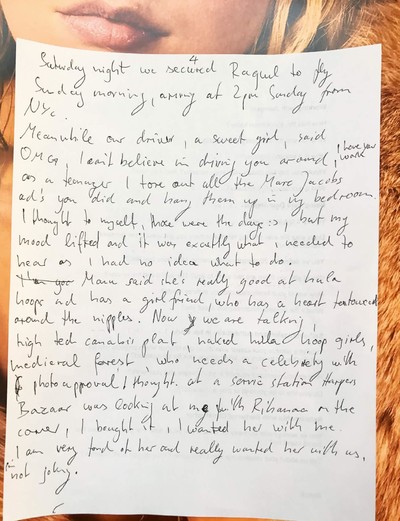 4
Saturday night we secured Raquel to fly
Sunday morning, arriving at 2pm Sunday from
NYC.
Meanwhile our driver, a sweet girl, said
OMG, I can't believe im driving you around, I love your work
as a teenager I tore out all the Marc Jacobs
ad's you did and hang them up in my bedroom.
I thought to myself, those were the days :), but my
mood lifted and it was exactly what I needed to
hear as I had no idea what to do.
Manu said she's really good at hula
hoops and has a girlfriend, who has a heart tattooed
around the nipples. Now we are talking,
high ted canabis plat, naked hula hoop girls,
medieval forest, who needs a celebrity with
photo approval, I thought. at a servic station Harpers
Bazaar was looking at me with Rihanna on the
cover, I bought it, I wanted her with me.
I am very fond of her and really wanted her with us,
i'm not joking.